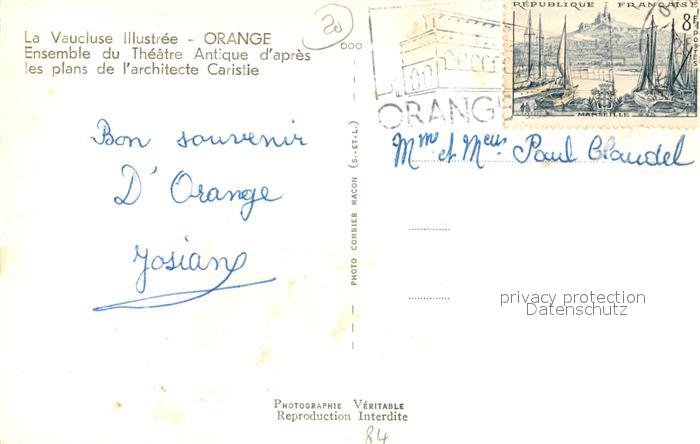 La Vaucluse Illustrée - ORANGE
Ensemble du Théâtre Antique d'après
les plans de l'architecte Caristie
20
ORANGE
RÉPUBLIQUE FRANÇAISE
8F
POSTES
MARSEILLE
Bon souvenir
D'Orange
Josiane
PHOTO COMBIER MACON (S.-ET-L.)
Mme et Meur Paul Claudel
privacy protection
Datenschutz
PHOTOGRAPHIE VÉRITABLE
Reproduction Interdite
84